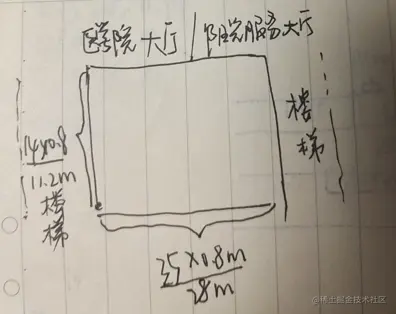 医院大厅/住院服务大厅
14x0.8
11.2m
楼梯
楼梯
35×0.8m
28m
@稀土掘金技术社区